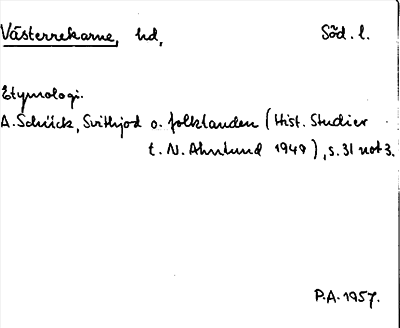 Västerrekarne, hd, Söd. l.
Etymologi.
A. Schück, Svithjod o. folklanden (Hist. Studier
t. N. Ahnlund 1949), s. 31 not 3.
P.A. 1957.